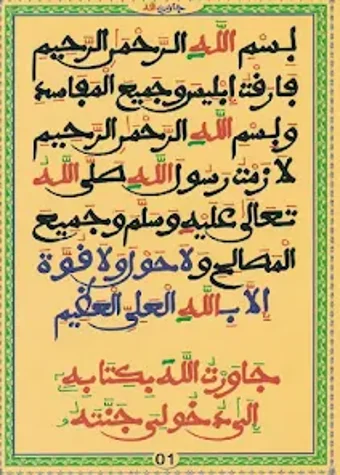 جاورت الله
بِسْمِ اللَّهِ الرَّحْمٰنِ الرَّحِيمِ
فَارَقْتُ إِبْلِيسَ وَجَمِيعَ الْمَفَاسِدِ
وَبِسْمِ اللَّهِ الرَّحْمٰنِ الرَّحِيمِ
لَازَمْتُ رَسُولَ اللَّهِ صَلَّى اللَّهُ
تَعَالَى عَلَيْهِ وَسَلَّمَ وَجَمِيعَ
الْمَصَالِحِ وَلَا حَوْلَ وَلَا قُوَّةَ
إِلَّا بِاللَّهِ الْعَلِيِّ الْعَظِيمِ
جَاوَرْتُ اللَّهَ بِكِتَابِهِ
إِلَى دُخُولِي جَنَّتَهُ
01